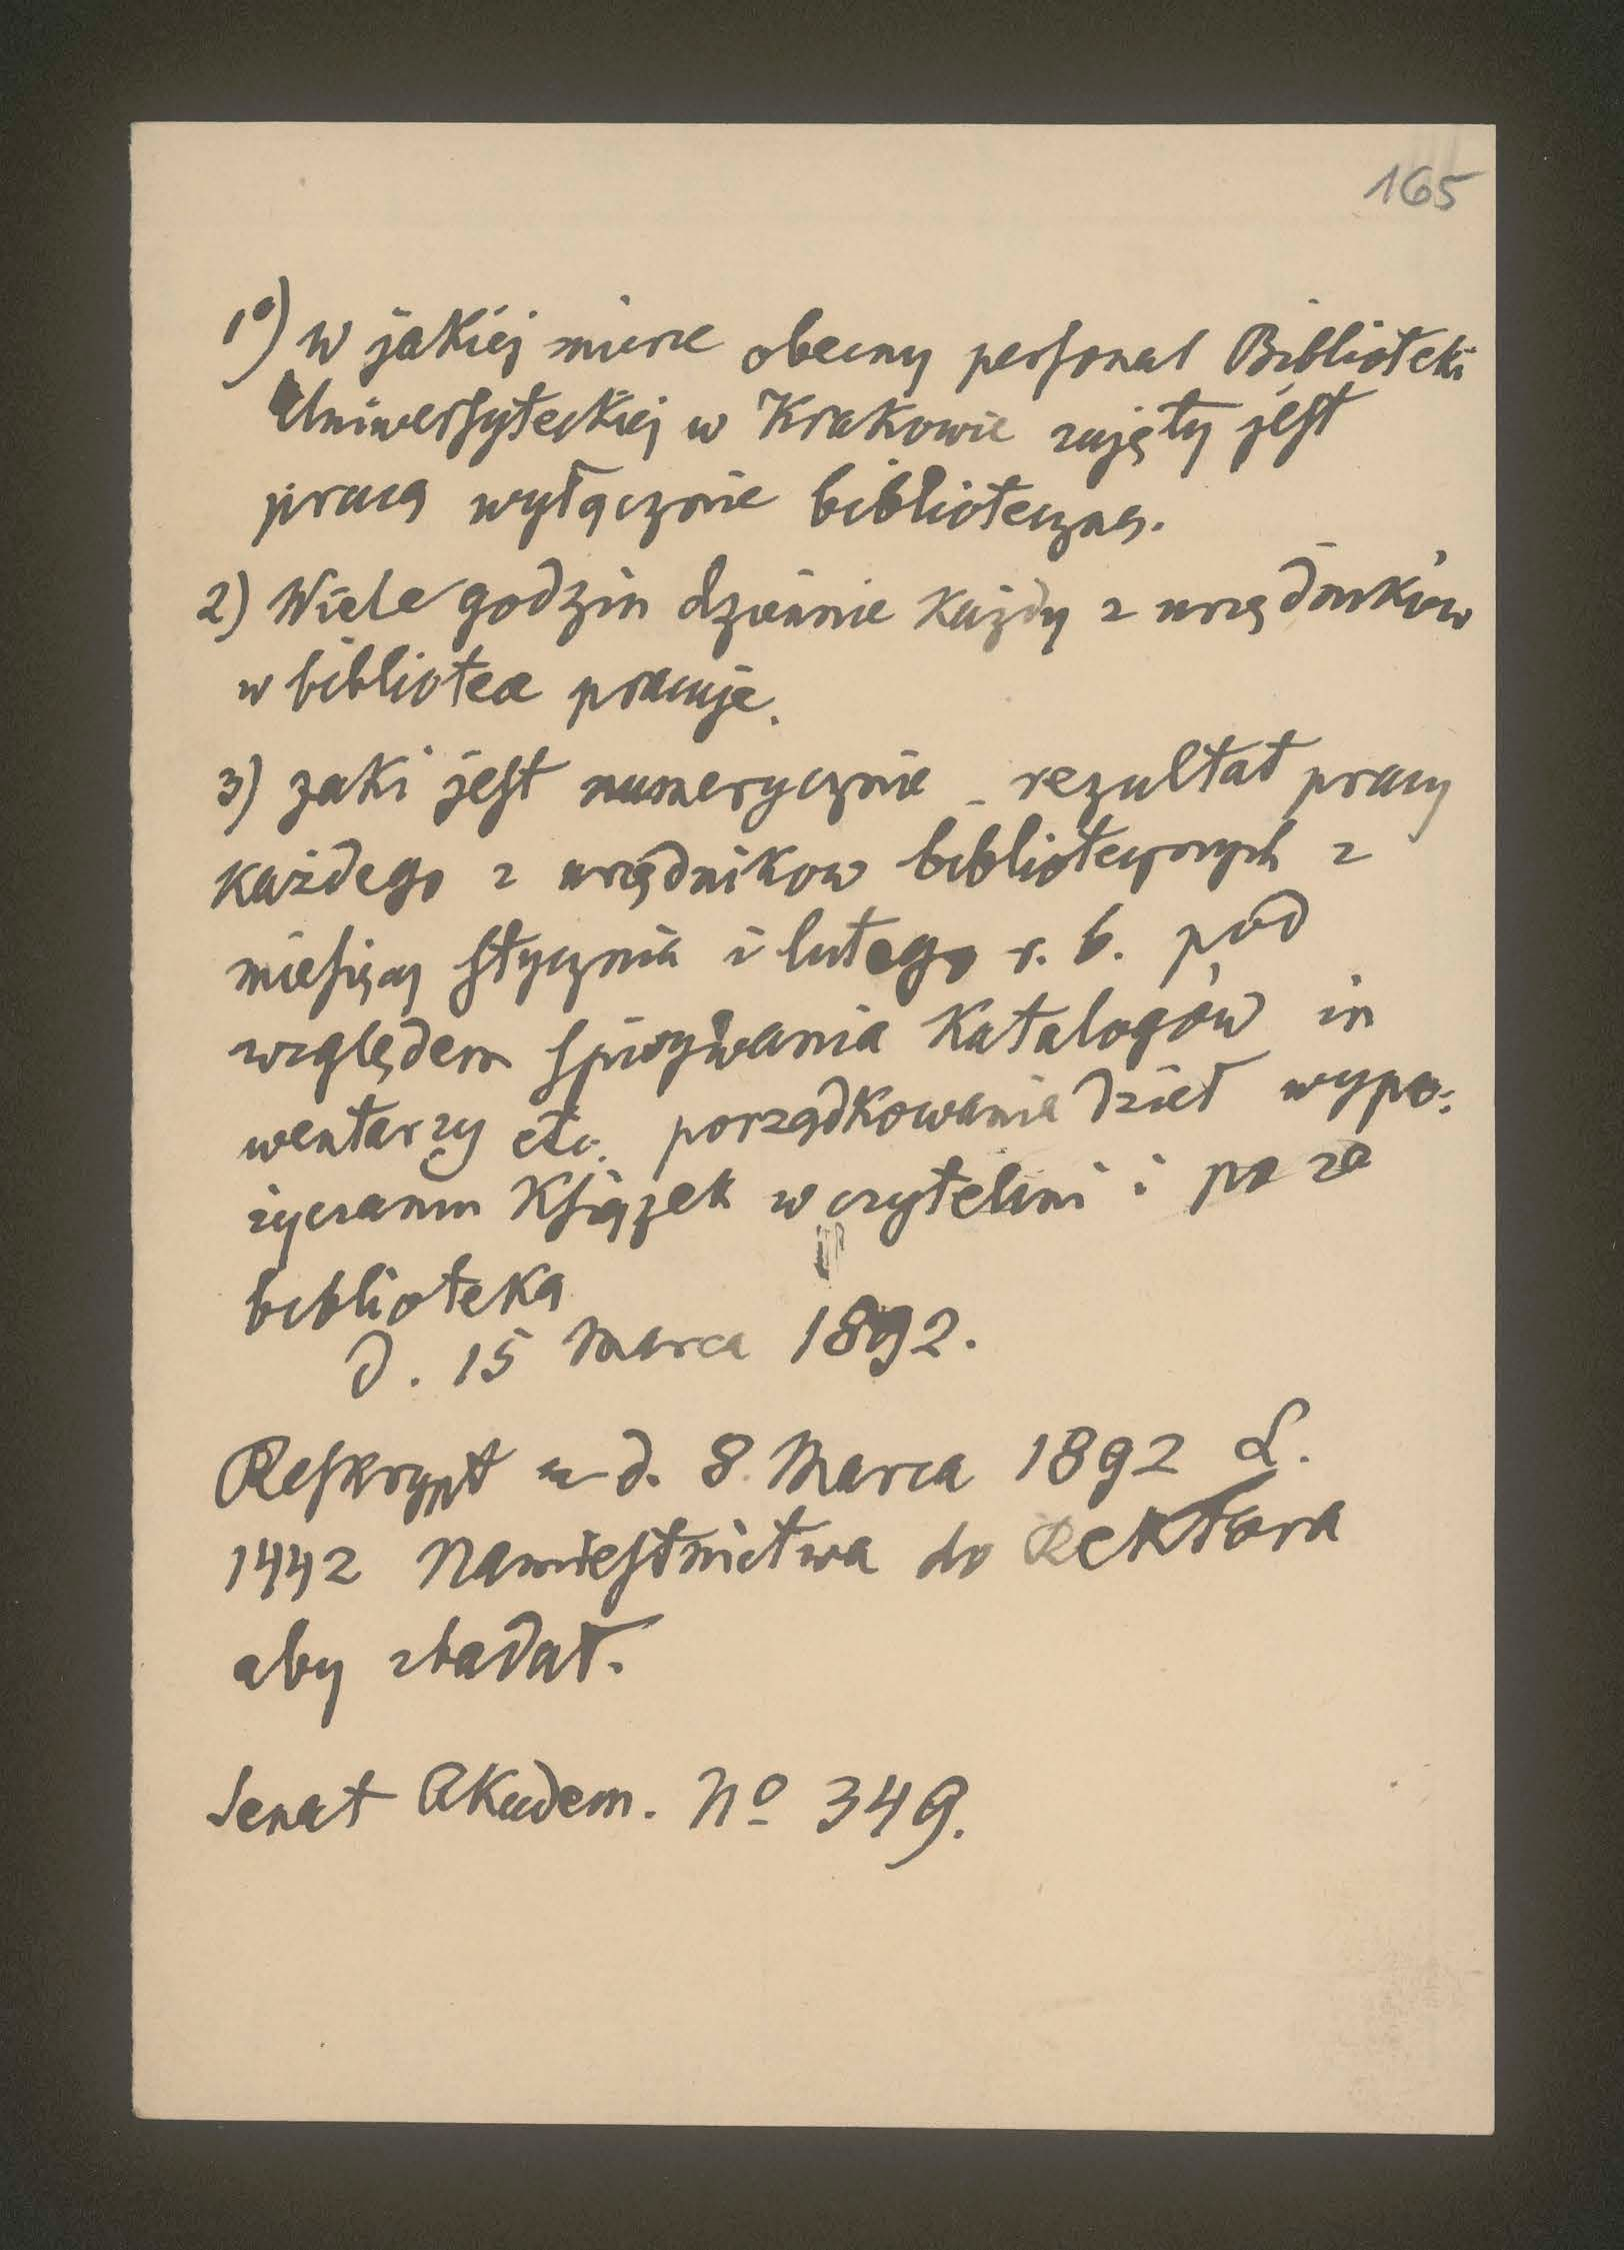 165
1º) w jakiej mierze obecny personal Biblioteki
Uniwersyteckiej w Krakowie zajęty jest
pracą wyłącznie biblioteczną.
2) Wiele godzin dziennie każdy z urzędników
w bibliotece pracuje.
3) jaki jest numerycznie rezultat pracy
każdego z urzędnikow bibliotecznych z
miesięcy stycznia i lutego r. b. pod
względem spisywania katalogów in
wentarzy etc. porządkowania dzieł wypo:
życzania książek w czytelni i po za
biblioteką
d. 15 Marca 1892.
Reskrypt z d. 8. Marca 1892 L.
1442 Namiestnictwa do Rektora
aby zbadał.
Senat Akadem. Nº 349.